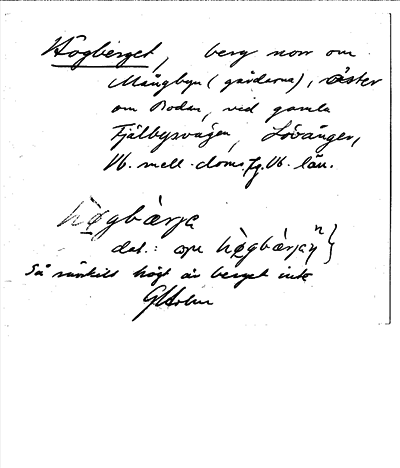 Högberget, berg norr om
Mångbyn (gårdarna), öster
om Bodan, vid gamla
Fjälbyvägen, Lövånger,
Vb. mell. doms.
hø̀gbærje
det.: hø̀gbærjen
Så särskilt högt är berget inte
GHolm